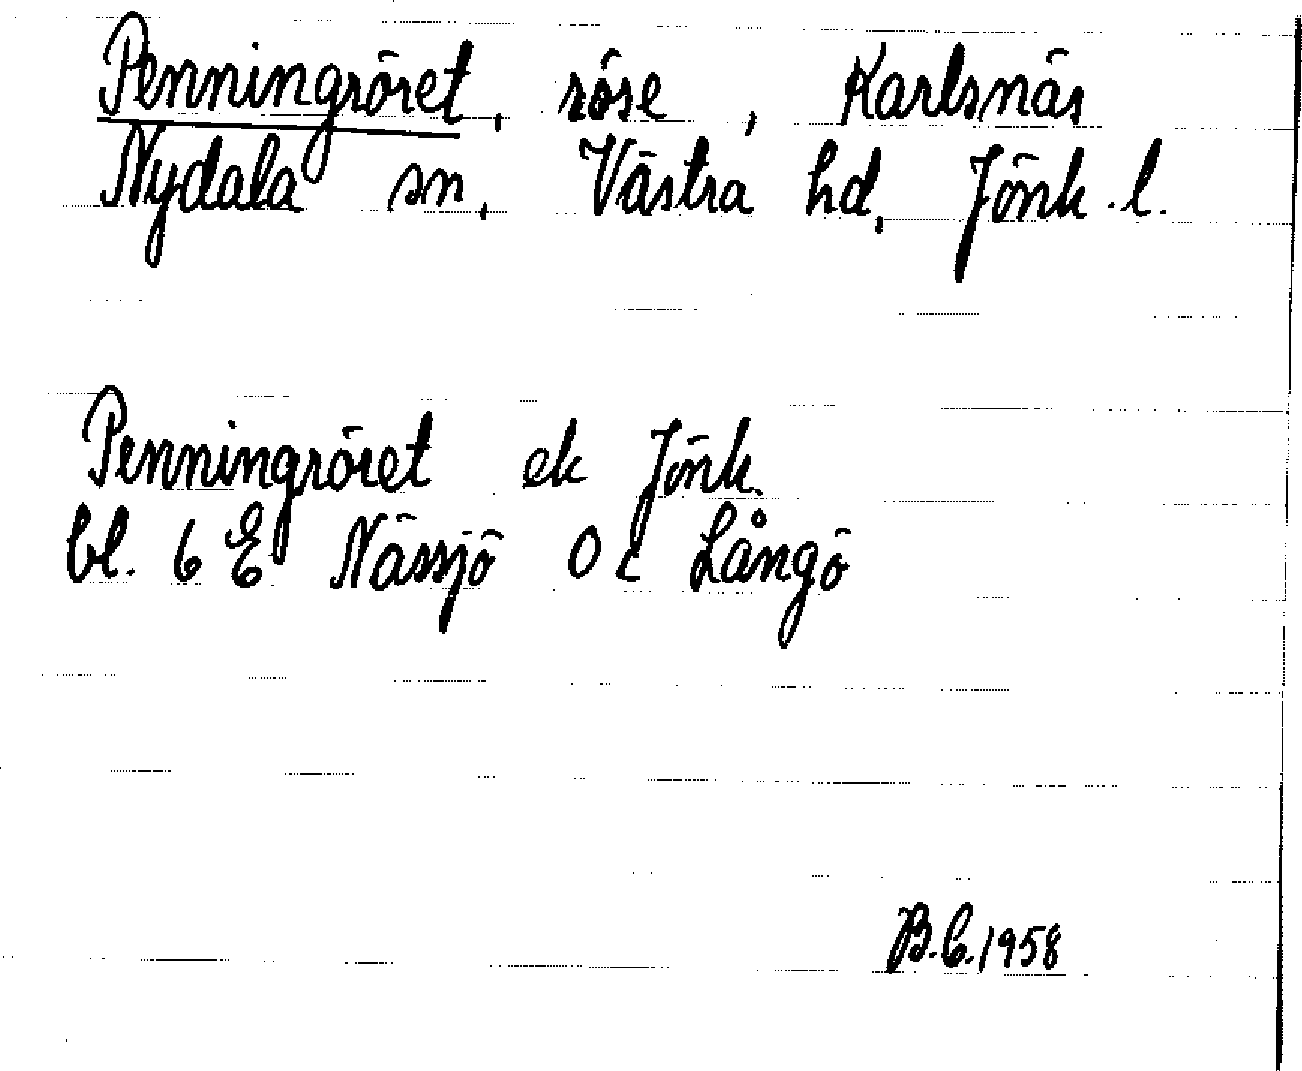 Penningröret, röse, Karlsnäs
Nydala sn, Västra hd, Jönk. l.
Penningröret ek Jönk.
bl. 6 E Nässjö 0 c Långö
B.C. 1958